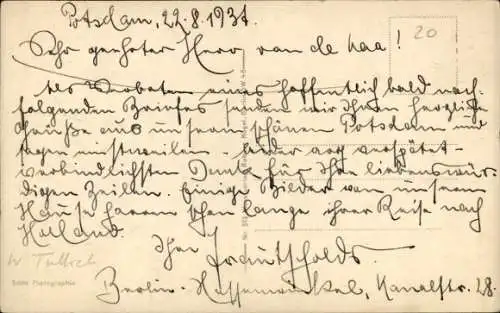 Potsdam, 22.8.1931.
20
Sehr geehrter Herr van de Kaa!
Als Vorboten eines hoffentlich bald nach-
folgenden Briefes senden wir Ihnen herzliche
Grüße aus unserm schönen Potsdam und
sagen einstweilen – leider arg verspätet –
verbindlichsten Dank für Ihre liebenswür-
digen Zeilen. Einige Bilder von unserm
Hause harren schon lange ihrer Reise nach
Holland.
Ihre
Berlin-Hessenwinkel, Kanalstr. 28.
Echte Photographie